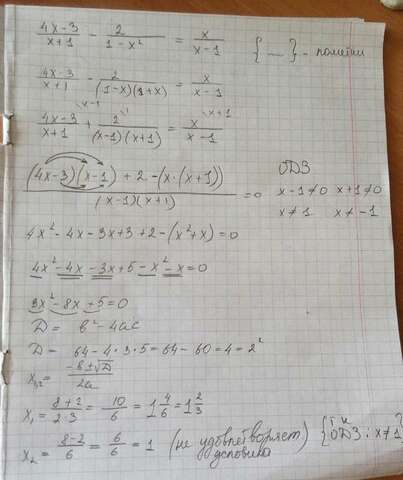 (4x-3)/(x+1) - 2/(1-x²) = x/(x-1) { __ } - пометки
(4x-3)/(x+1) - 2/((1-x)(1+x)) = x/(x-1)
(4x-3)/(x+1) \x-1 + 2/((x-1)(x+1)) \1 = x/(x-1) \x+1
((4x-3)(x-1) + 2 - (x·(x+1)))/((x-1)(x+1)) = 0
ОДЗ
x-1≠0 x+1≠0
x≠1 x≠-1
4x²-4x-3x+3+2-(x²+x)=0
4x²-4x-3x+5-x²-x=0
3x²-8x+5=0
D = b²-4ac
D = 64-4·3·5=64-60=4=2²
x₁,₂ = (-b±√D)/2a
x₁ = (8+2)/(2·3) = 10/6 = 1 4/6 = 1 2/3
x₂ = (8-2)/6 = 6/6 = 1 (не удовлетворяет условиям) {т.к ОДЗ: x≠1}